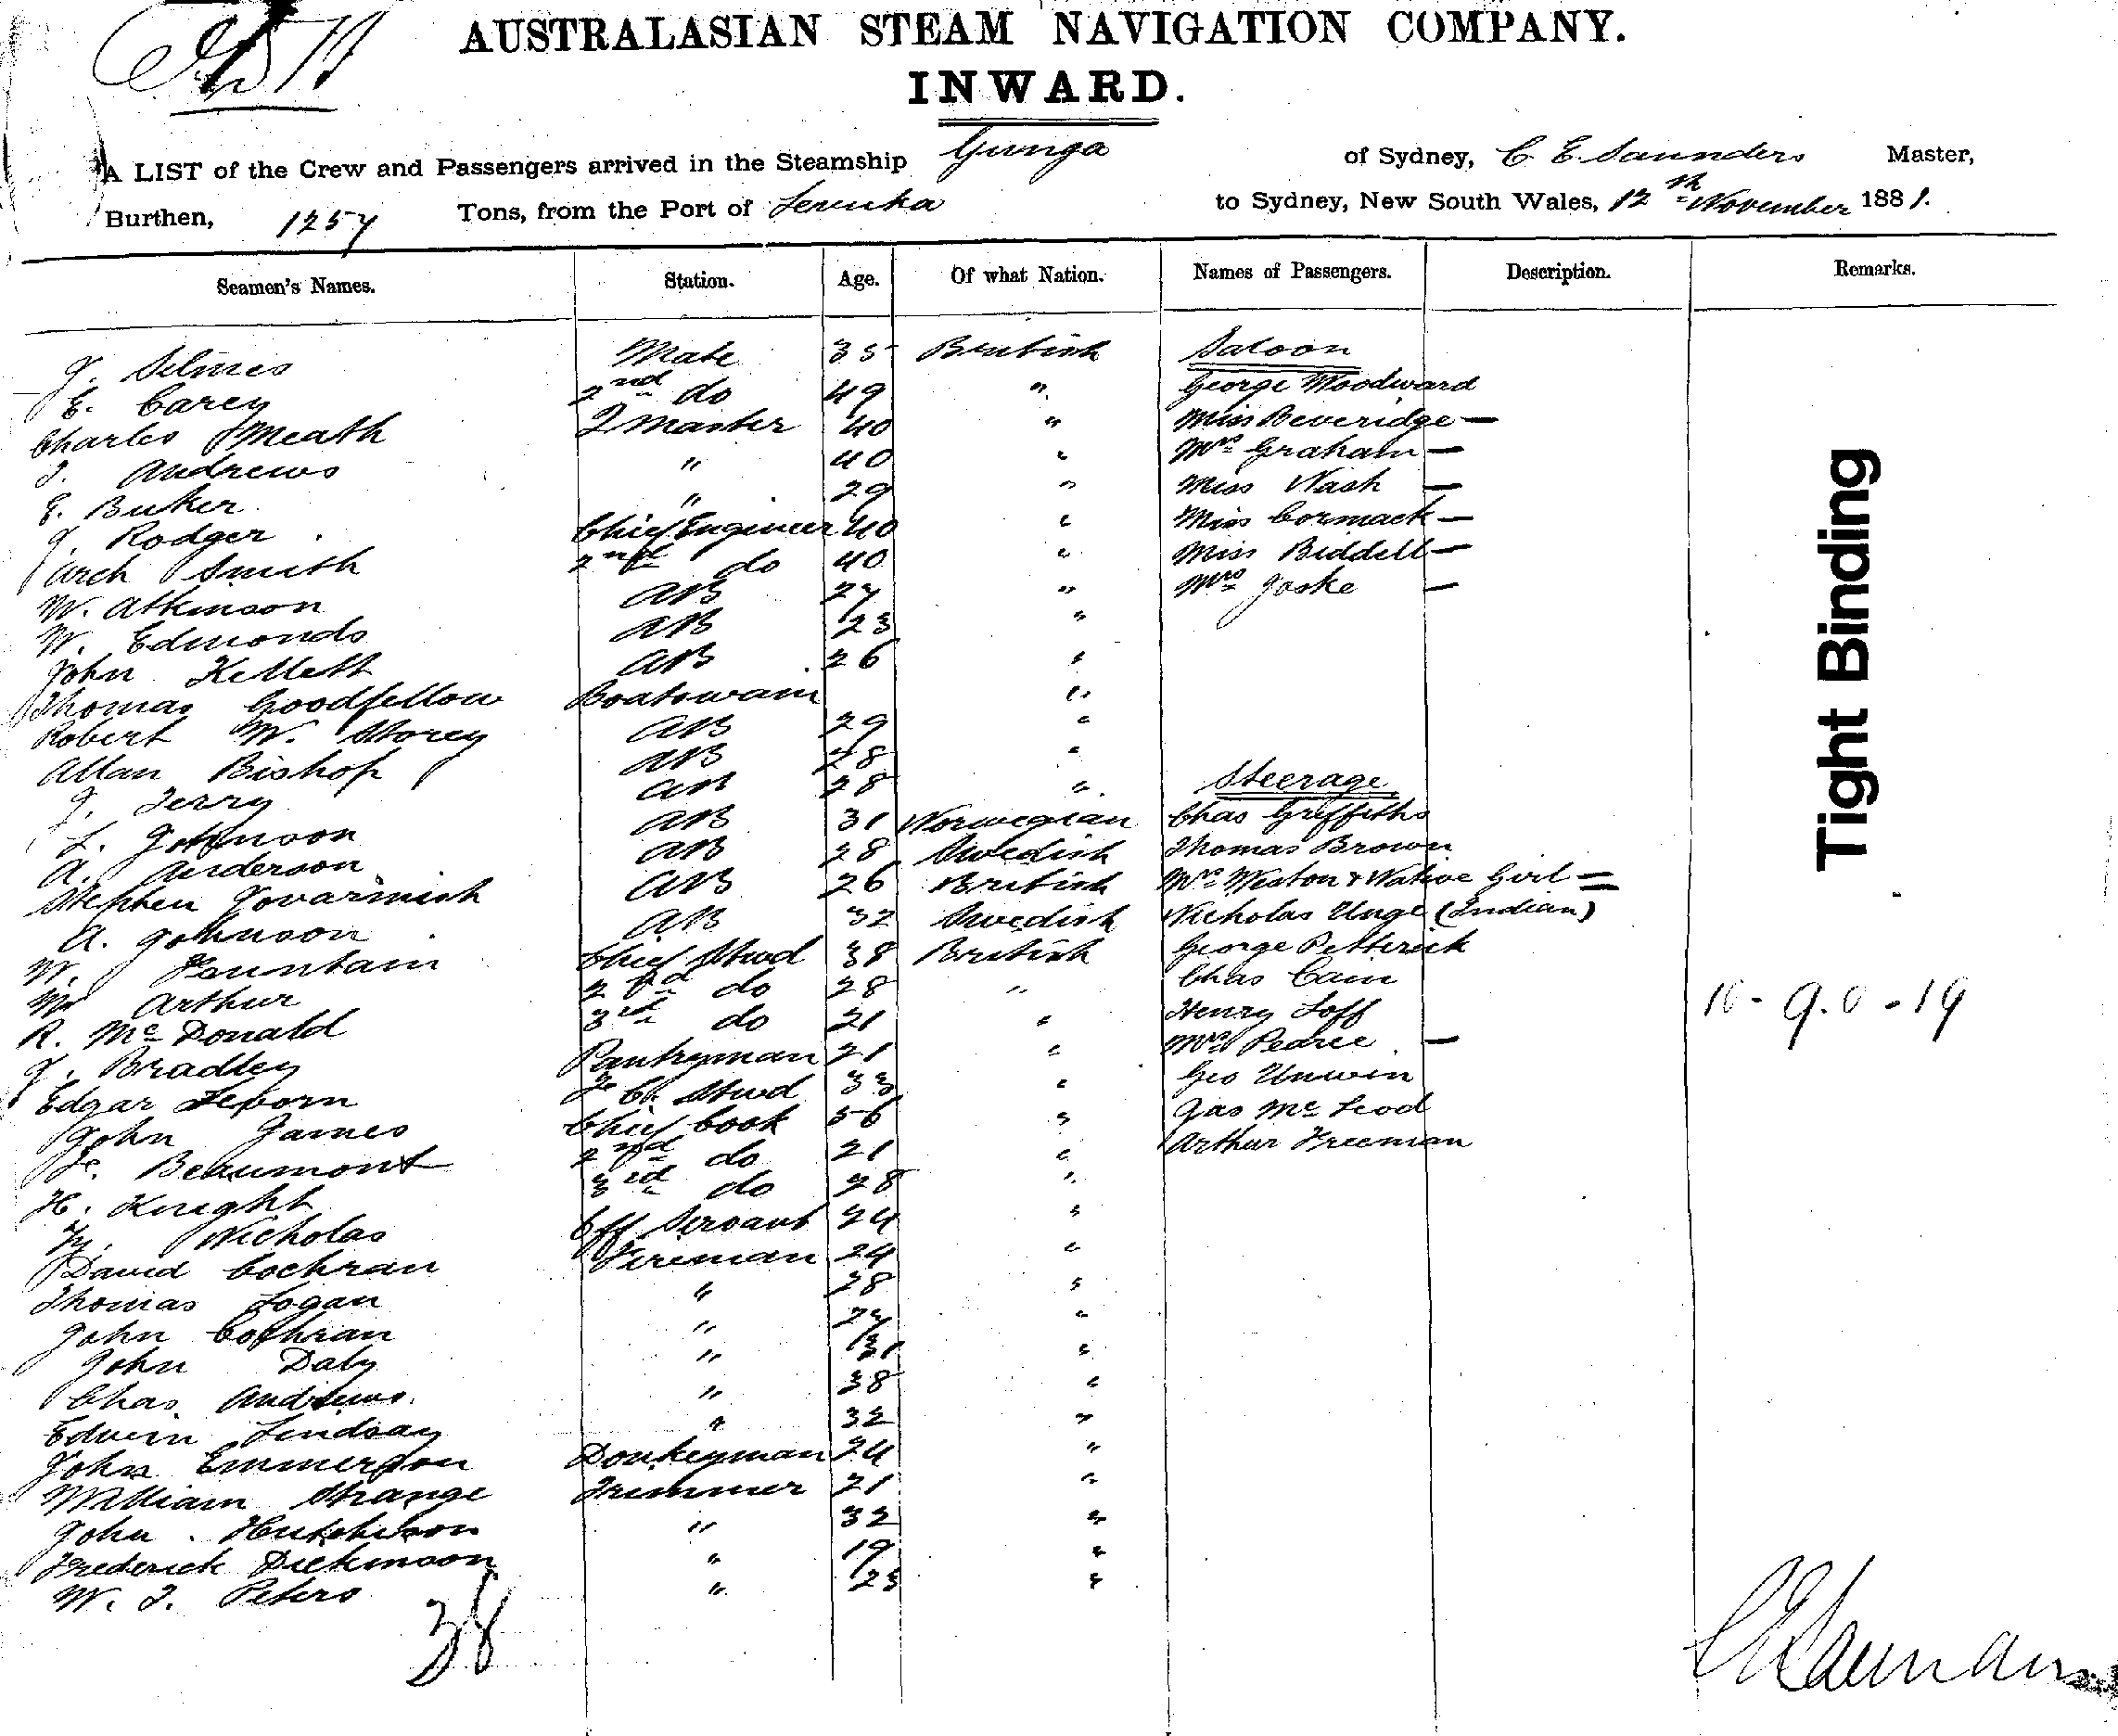 AUSTRALASIAN STEAM NAVIGATION COMPANY.
INWARD.
A LIST of the Crew and Passengers arrived in the Steamship Gunga of Sydney, C. E. Saunders Master,
Burthen, 1257 Tons, from the Port of Levuka to Sydney, New South Wales, 12th November 1881.
Seamen's Names. Station. Age. Of what Nation. Names of Passengers. Description. Remarks.
J. Selmes Mate 35 British Saloon
E. Carey 2nd do 49 " George Woodward
Charles Meath Q Master 40 " Miss Beveridge —
J. Andrews " 40 " Mrs Graham —
E. Buker " 29 " Miss Nash —
J. Rodger Chief Engineer 40 " Miss Cormack —
Arch Smith 2nd do 40 " Miss Biddell —
W. Atkinson AB 27 " Mrs Joske —
W. Edmonds AB 23 "
John Kellett AB 26 "
Thomas Goodfellow Boatswain "
Robert W. Storey AB 29 "
Allan Bishop AB 28 "
J. Terry AB 28 " Steerage
L. Johnson AB 31 Norwegian Chas Griffiths
A. Anderson AB 28 Swedish Thomas Brown
Stephen AB 26 British Mrs Weston & Native Girl =
A. Johnson AB 32 Swedish Nicholas Unge (Indian)
W. Fountain Chief Stwd 38 British George Petterick
W Arthur 2nd do 28 " Chas Cain
R. McDonald 3rd do 21 " Henry Loff
J. Bradley Pantryman 21 " Mrs Pearce —
Edgar Leporn F. C. Stwd 33 " Geo Unwin
John James Chief Cook 56 " Jas McLeod
F. Beaumont 2nd do 21 " Arthur Freeman
H. Knight 3rd do 28 "
W. Nicholas Off Servant 24 "
David Cochran Fireman 24 "
Thomas Logan " 28 "
John Cochran " 27 "
John Daly " 31 "
Chas Andrews " 38 "
Edwin Lindsay " 32 "
John Emmerson Donkeyman 24 "
William Strange Trimmer 21 "
John Hutchison " 32 "
Frederick Dickinson " 19 "
W. J. Peters " 23 "
38
Tight Binding
10-9.0-19